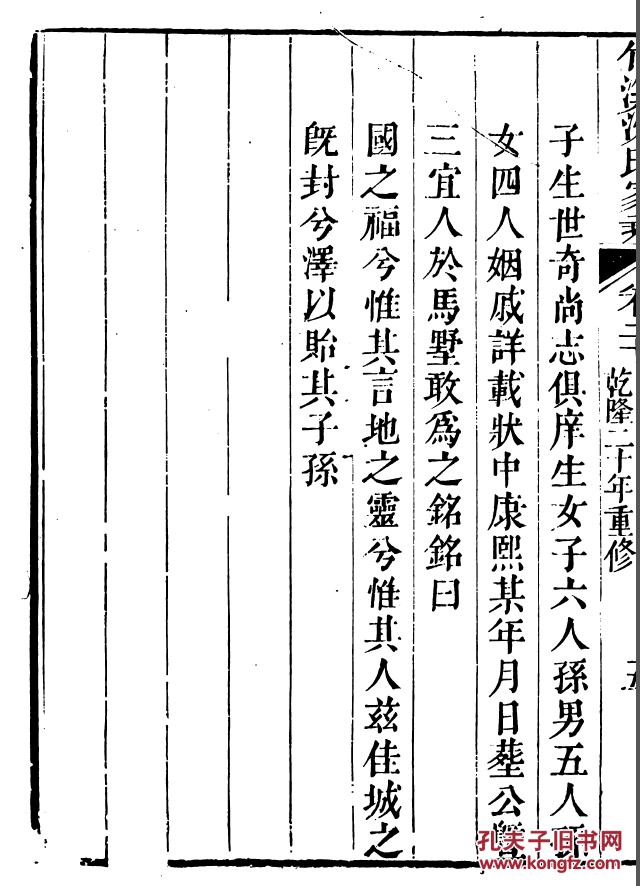 乾隆二十年重修
子生世奇尚志俱庠生女子六人孫男五人孫
女四人姻戚詳載狀中康熙某年月日塟公暨
三宜人於馬墅敢爲之銘銘曰
國之福兮惟其言地之靈兮惟其人兹佳城之
旣封兮澤以貽其子孫
孔夫子旧书网
www.kongfz.com